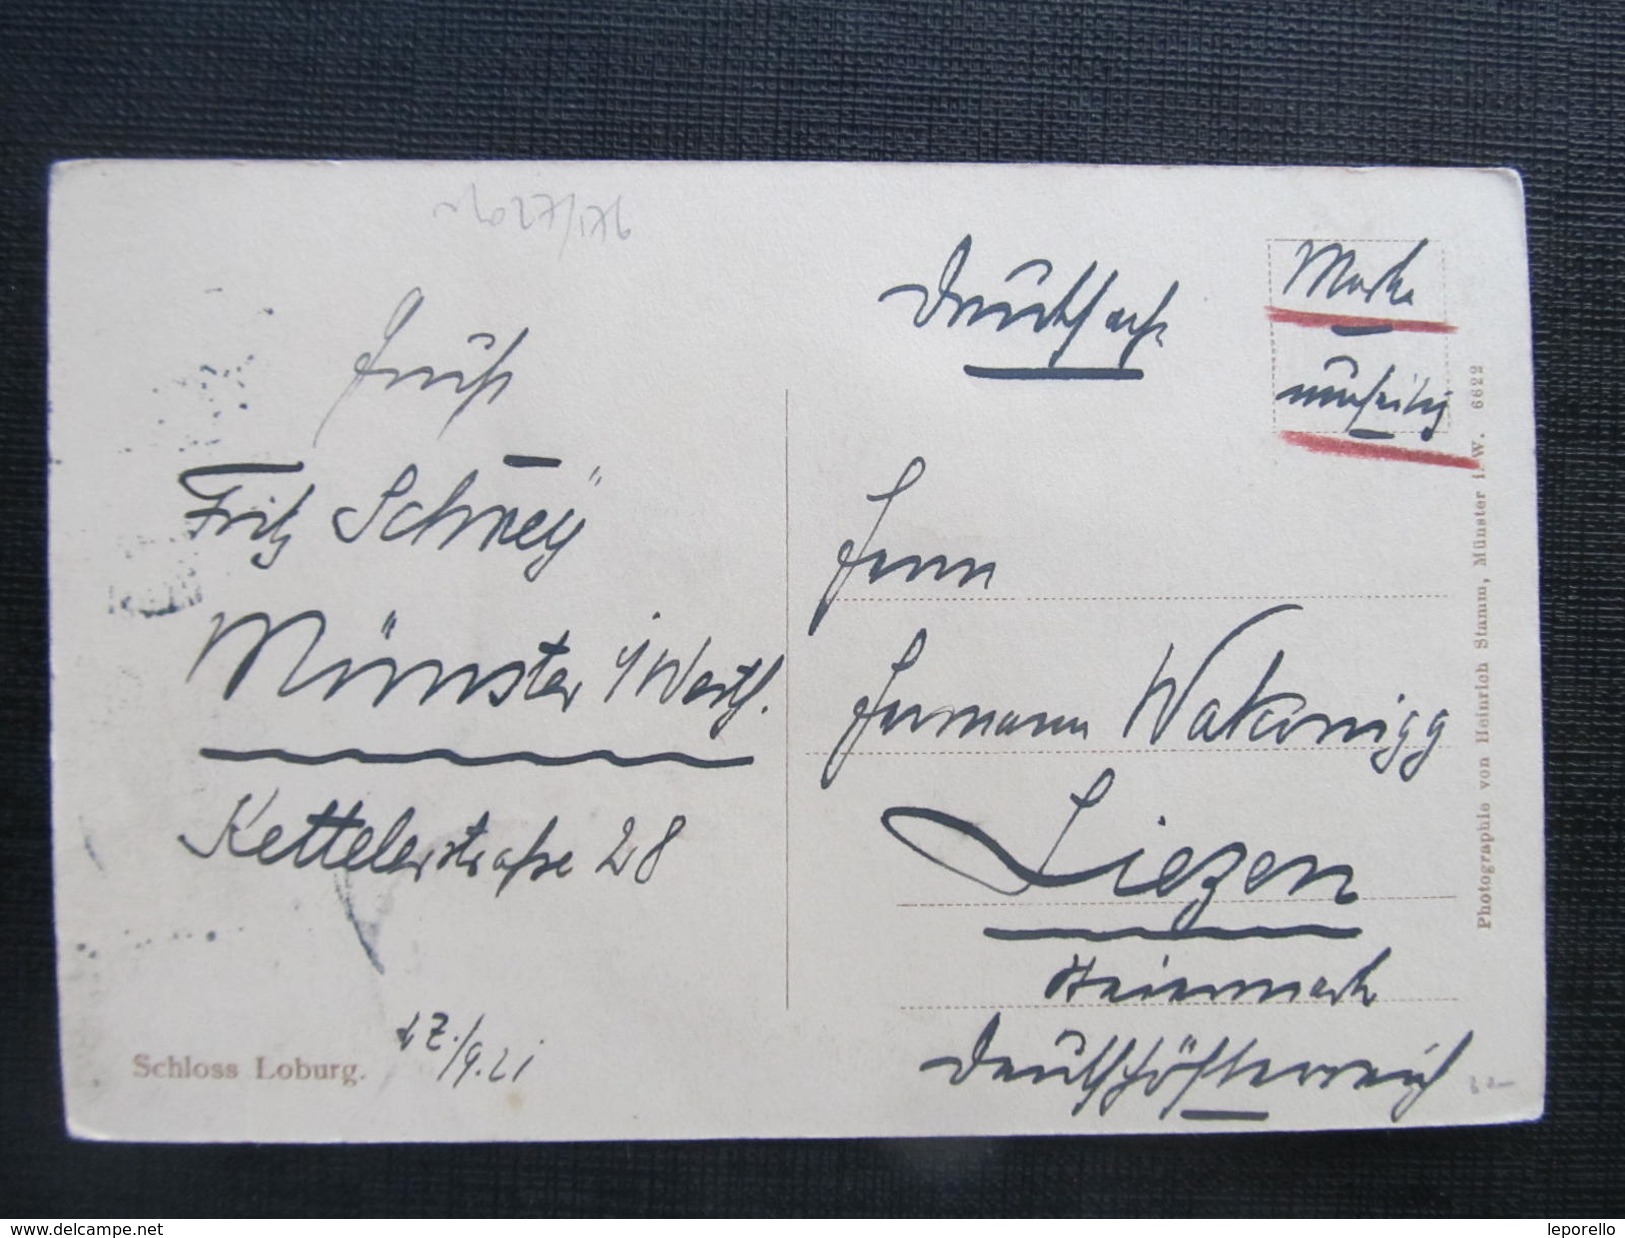 Drucksache
Marke
umseitig
Gruß
Fritz Schrey
Münster i/Westf.
Kettelerstraße 28
17./9.21
Schloss Loburg.
Herrn
Hermann Wakonigg
Liezen
Steiermark
Deutschösterreich
Photographie von Heinrich Stamm, Münster i. W. 6622
www.delcampe.net
leporello